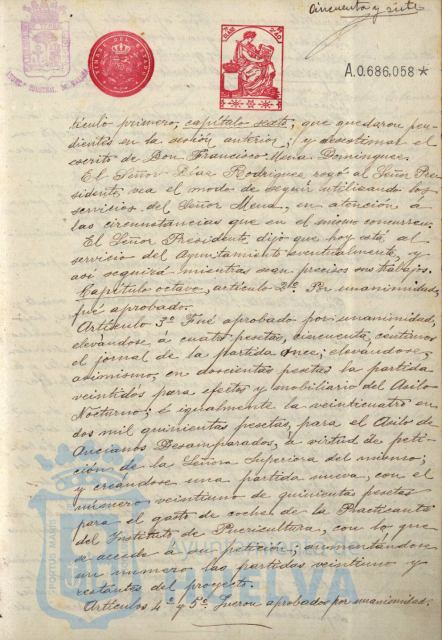 Cincuenta y siete
TIMBRE DEL ESTADO
A.0.686,058 *
tículo primero, capítulo sexto, que quedaron pen-
dientes en la sesión anterior; y desestimar el
escrito de Don Francisco Mena Domínguez.
El Señor Díaz Rodríguez rogó al Señor Pre-
sidente, vea el modo de seguir utilizando los
servicios del Señor Mena, en atención á
las circunstancias que en el mismo concurren.
El Señor Presidente, dijo que hoy está, al
servicio del Ayuntamiento eventualmente, y
así seguirá mientras sean precisos sus trabajos.
Capítulo octavo, artículo 2º Por unanimidad,
fué aprobado.
Artículo 3º Fué aprobado por unanimidad,
elevándose á cuatro pesetas, cincuenta, céntimos
el jornal de la partida once; elevándose,
asimismo, en doscientas pesetas la partida
veintidos para efectos y mobiliario del Asilo
Nocturno; é igualmente la veinticuatro en
dos mil quinientas pesetas, para el Asilo de
Ancianos Desamparados, á virtud de peti-
ción de la Señora Superiora del mismo;
y creándose una partida nueva, con el
número veintiuno de quinientas pesetas
para el gasto de coches de la Practicante
del Instituto de Puericultura, con lo que
se accede á su petición; aumentándose
un número las partidas veintiuno y
restantes del proyecto.
Artículos 4º y 5º Fueron aprobados por unanimidad.
Ayuntamiento de
HUELVA